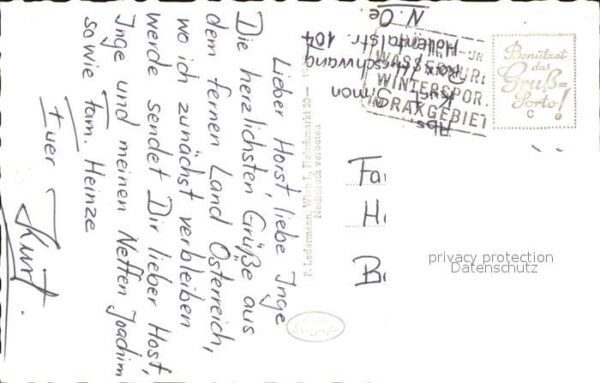 Lieber Horst, liebe Inge
Die herzlichsten Grüße aus
dem fernen Land Österreich,
wo ich zunächst verbleiben
werde sendet Dir lieber Horst,
Inge und meinen Neffen Joachim
sowie fam. Heinze
Euer
Kurt.
P. Ledermann, Wien I,
Nachdruck verboten
Abs
Kurt Simon
Hirschwang
Höllentalstr. 104
N. Oe
WASSERKUR
WINTERSPOR
RAXGEBIET
Benützet
das
Gruß-
Porto!
C
Fa
H
B
privacy protection
Datenschutz